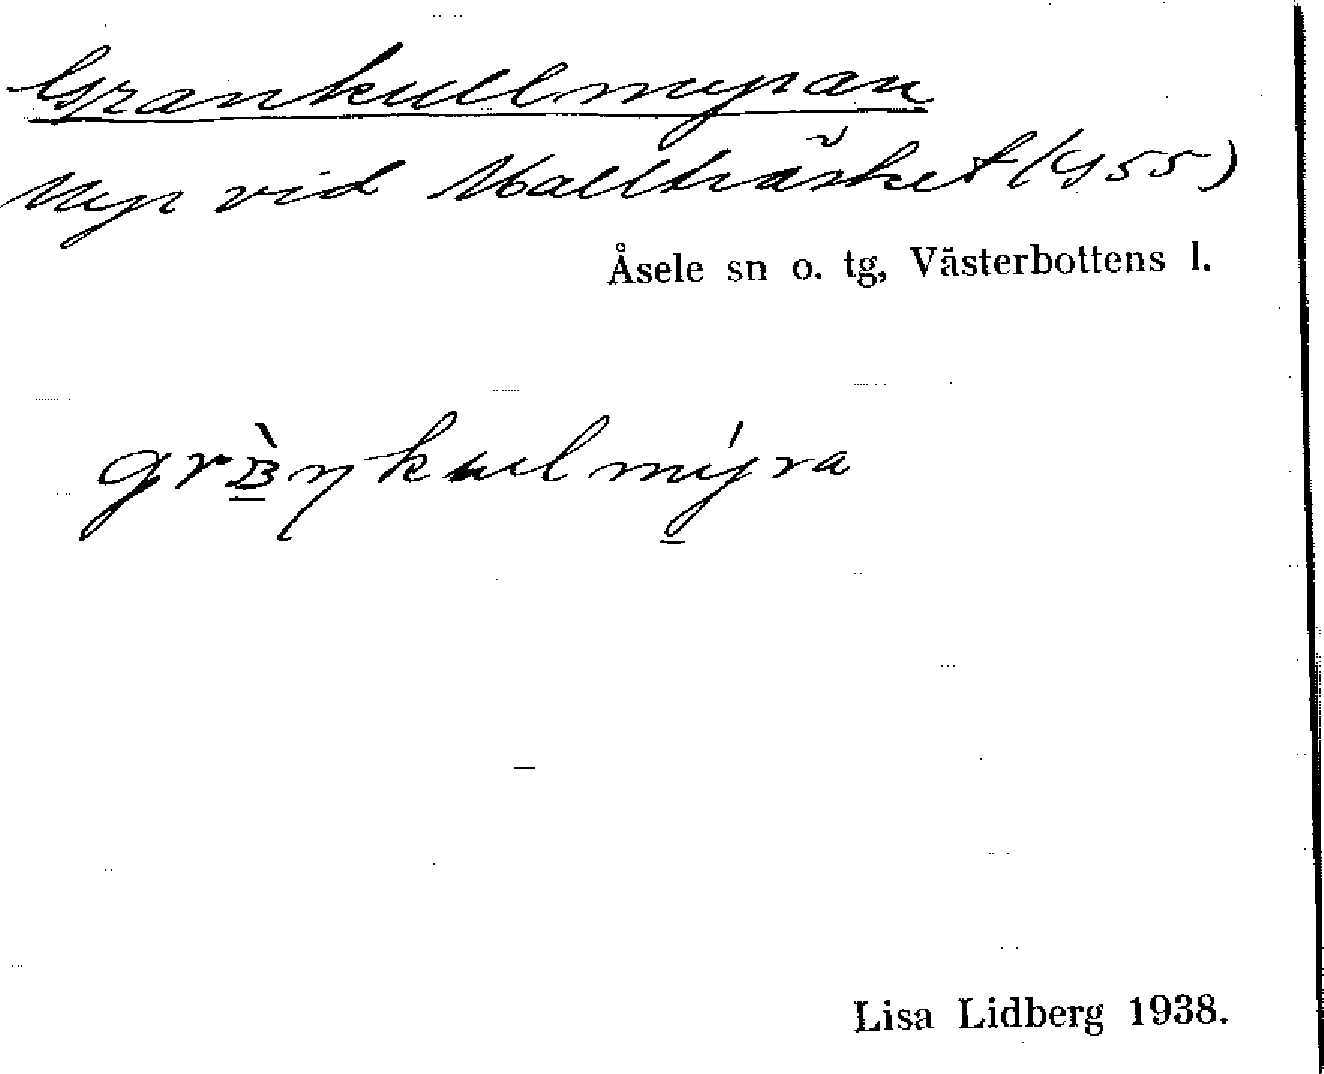 Grankullmyran
Myr vid Mallträsket (455)
Åsele sn o. tg, Västerbottens l.
Lisa Lidberg 1938.